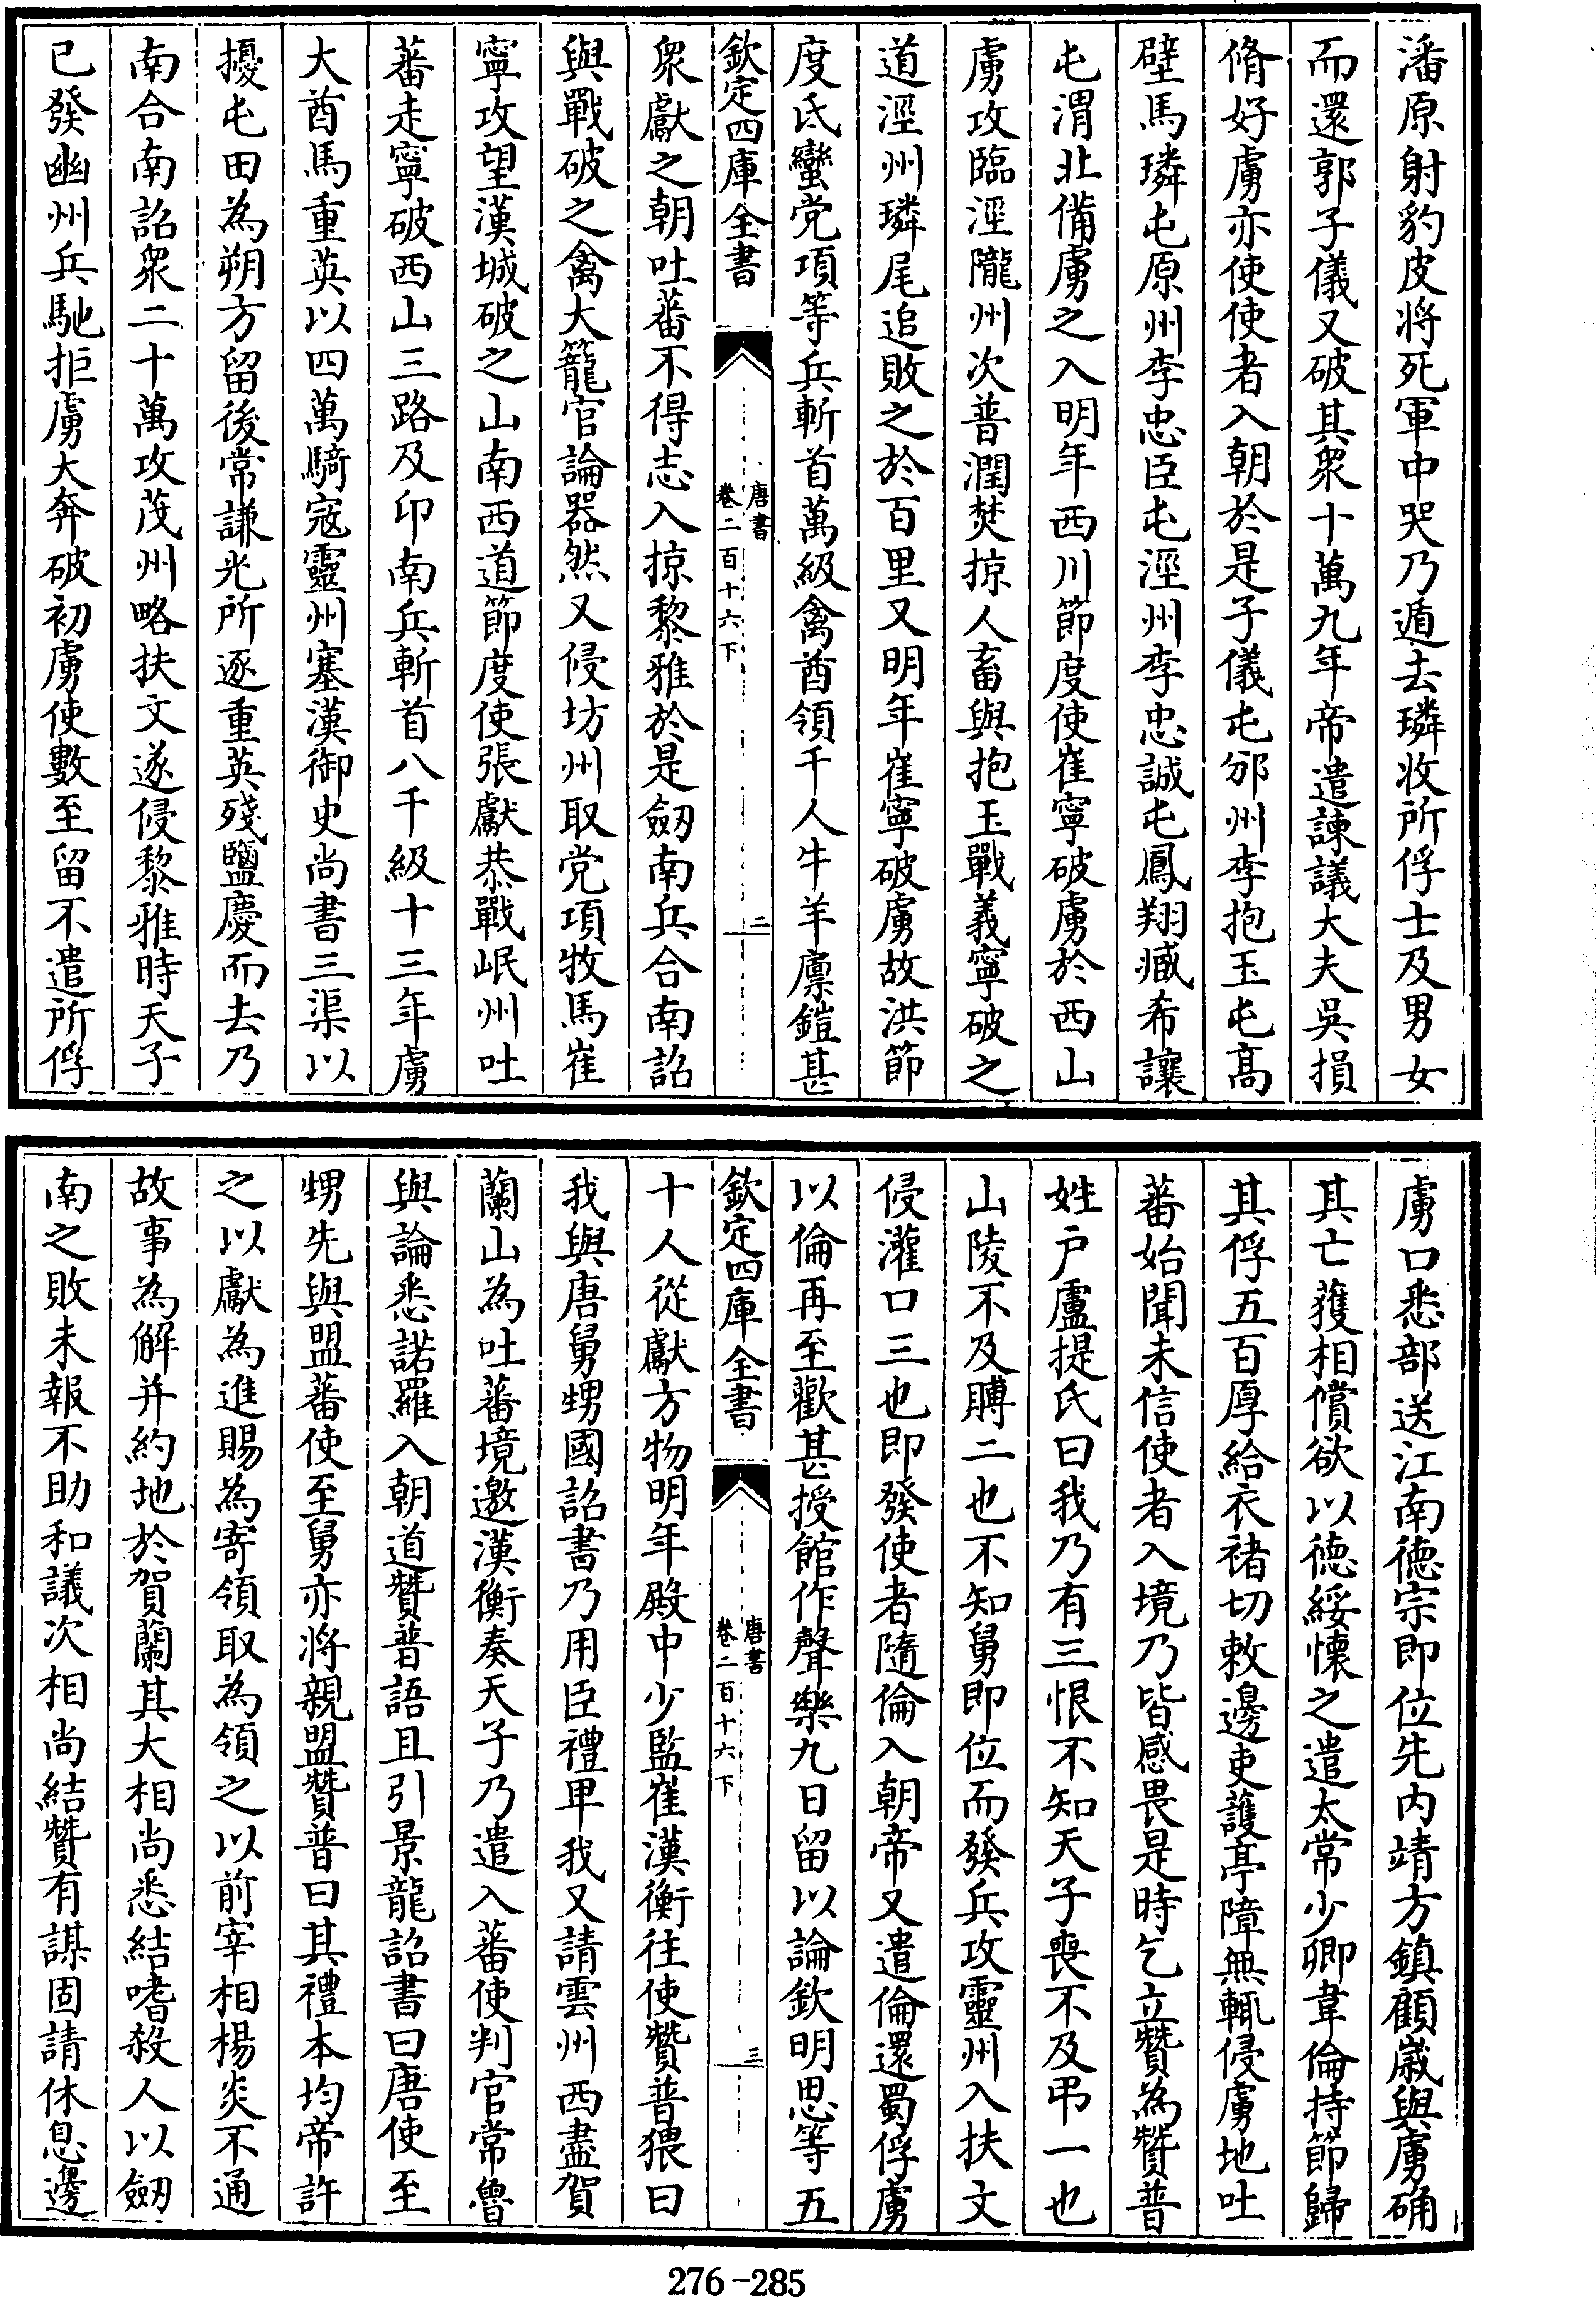 潘原射豹皮将死軍中哭乃遁去璘收所俘士及男女
而還郭子儀又破其衆十萬九年帝遣諫議大夫吳損
脩好虜亦使使者入朝於是子儀屯邠州李抱玉屯髙
壁馬璘屯原州李忠臣屯涇州李忠誠屯鳳翔臧希讓
屯渭北備虜之入明年西川節度使崔寧破虜於西山
虜攻臨涇隴州次普潤焚掠人畜與抱玉戰義寧破之
道涇州璘尾追敗之於百里又明年崔寧破虜故洪節
度氐蠻党項等兵斬首萬級禽酋領千人牛羊廪鎧甚
欽定四庫全書
唐書
卷二百十六下
二
衆獻之朝吐蕃不得志入掠黎雅於是劒南兵合南詔
與戰破之禽大籠官論器然又侵坊州取党項牧馬崔
寧攻望漢城破之山南西道節度使張獻恭戰岷州吐
蕃走寧破西山三路及卭南兵斬首八千級十三年虜
大酋馬重英以四萬騎寇靈州塞漢御史尚書三渠以
擾屯田為朔方留後常謙光所逐重英殘鹽慶而去乃
南合南詔衆二十萬攻茂州略扶文遂侵黎雅時天子
已發幽州兵馳拒虜大奔破初虜使數至留不遣所俘
虜口悉部送江南德宗即位先内靖方鎮顧嵗與虜确
其亡獲相償欲以德綏懷之遣太常少卿韋倫持節歸
其俘五百厚給衣褚切敕邊吏護亭障無輒侵虜地吐
蕃始聞未信使者入境乃皆感畏是時乞立贊為贊普
姓户盧提氏曰我乃有三恨不知天子喪不及弔一也
山陵不及賻二也不知舅即位而發兵攻靈州入扶文
侵灌口三也即發使者隨倫入朝帝又遣倫還蜀俘虜
以倫再至歡甚授館作聲樂九日留以論欽明思等五
欽定四庫全書
唐書
卷二百十六下
三
十人從獻方物明年殿中少監崔漢衡往使贊普猥曰
我與唐舅甥國詔書乃用臣禮卑我又請雲州西盡賀
蘭山為吐蕃境邀漢衡奏天子乃遣入蕃使判官常魯
與論悉諾羅入朝道贊普語且引景龍詔書曰唐使至
甥先與盟蕃使至舅亦将親盟贊普曰其禮本均帝許
之以獻為進賜為寄領取為領之以前宰相楊炎不通
故事為解并約地於賀蘭其大相尚悉結嗜殺人以劒
南之敗未報不助和議次相尚結贊有謀固請休息邊
276-285